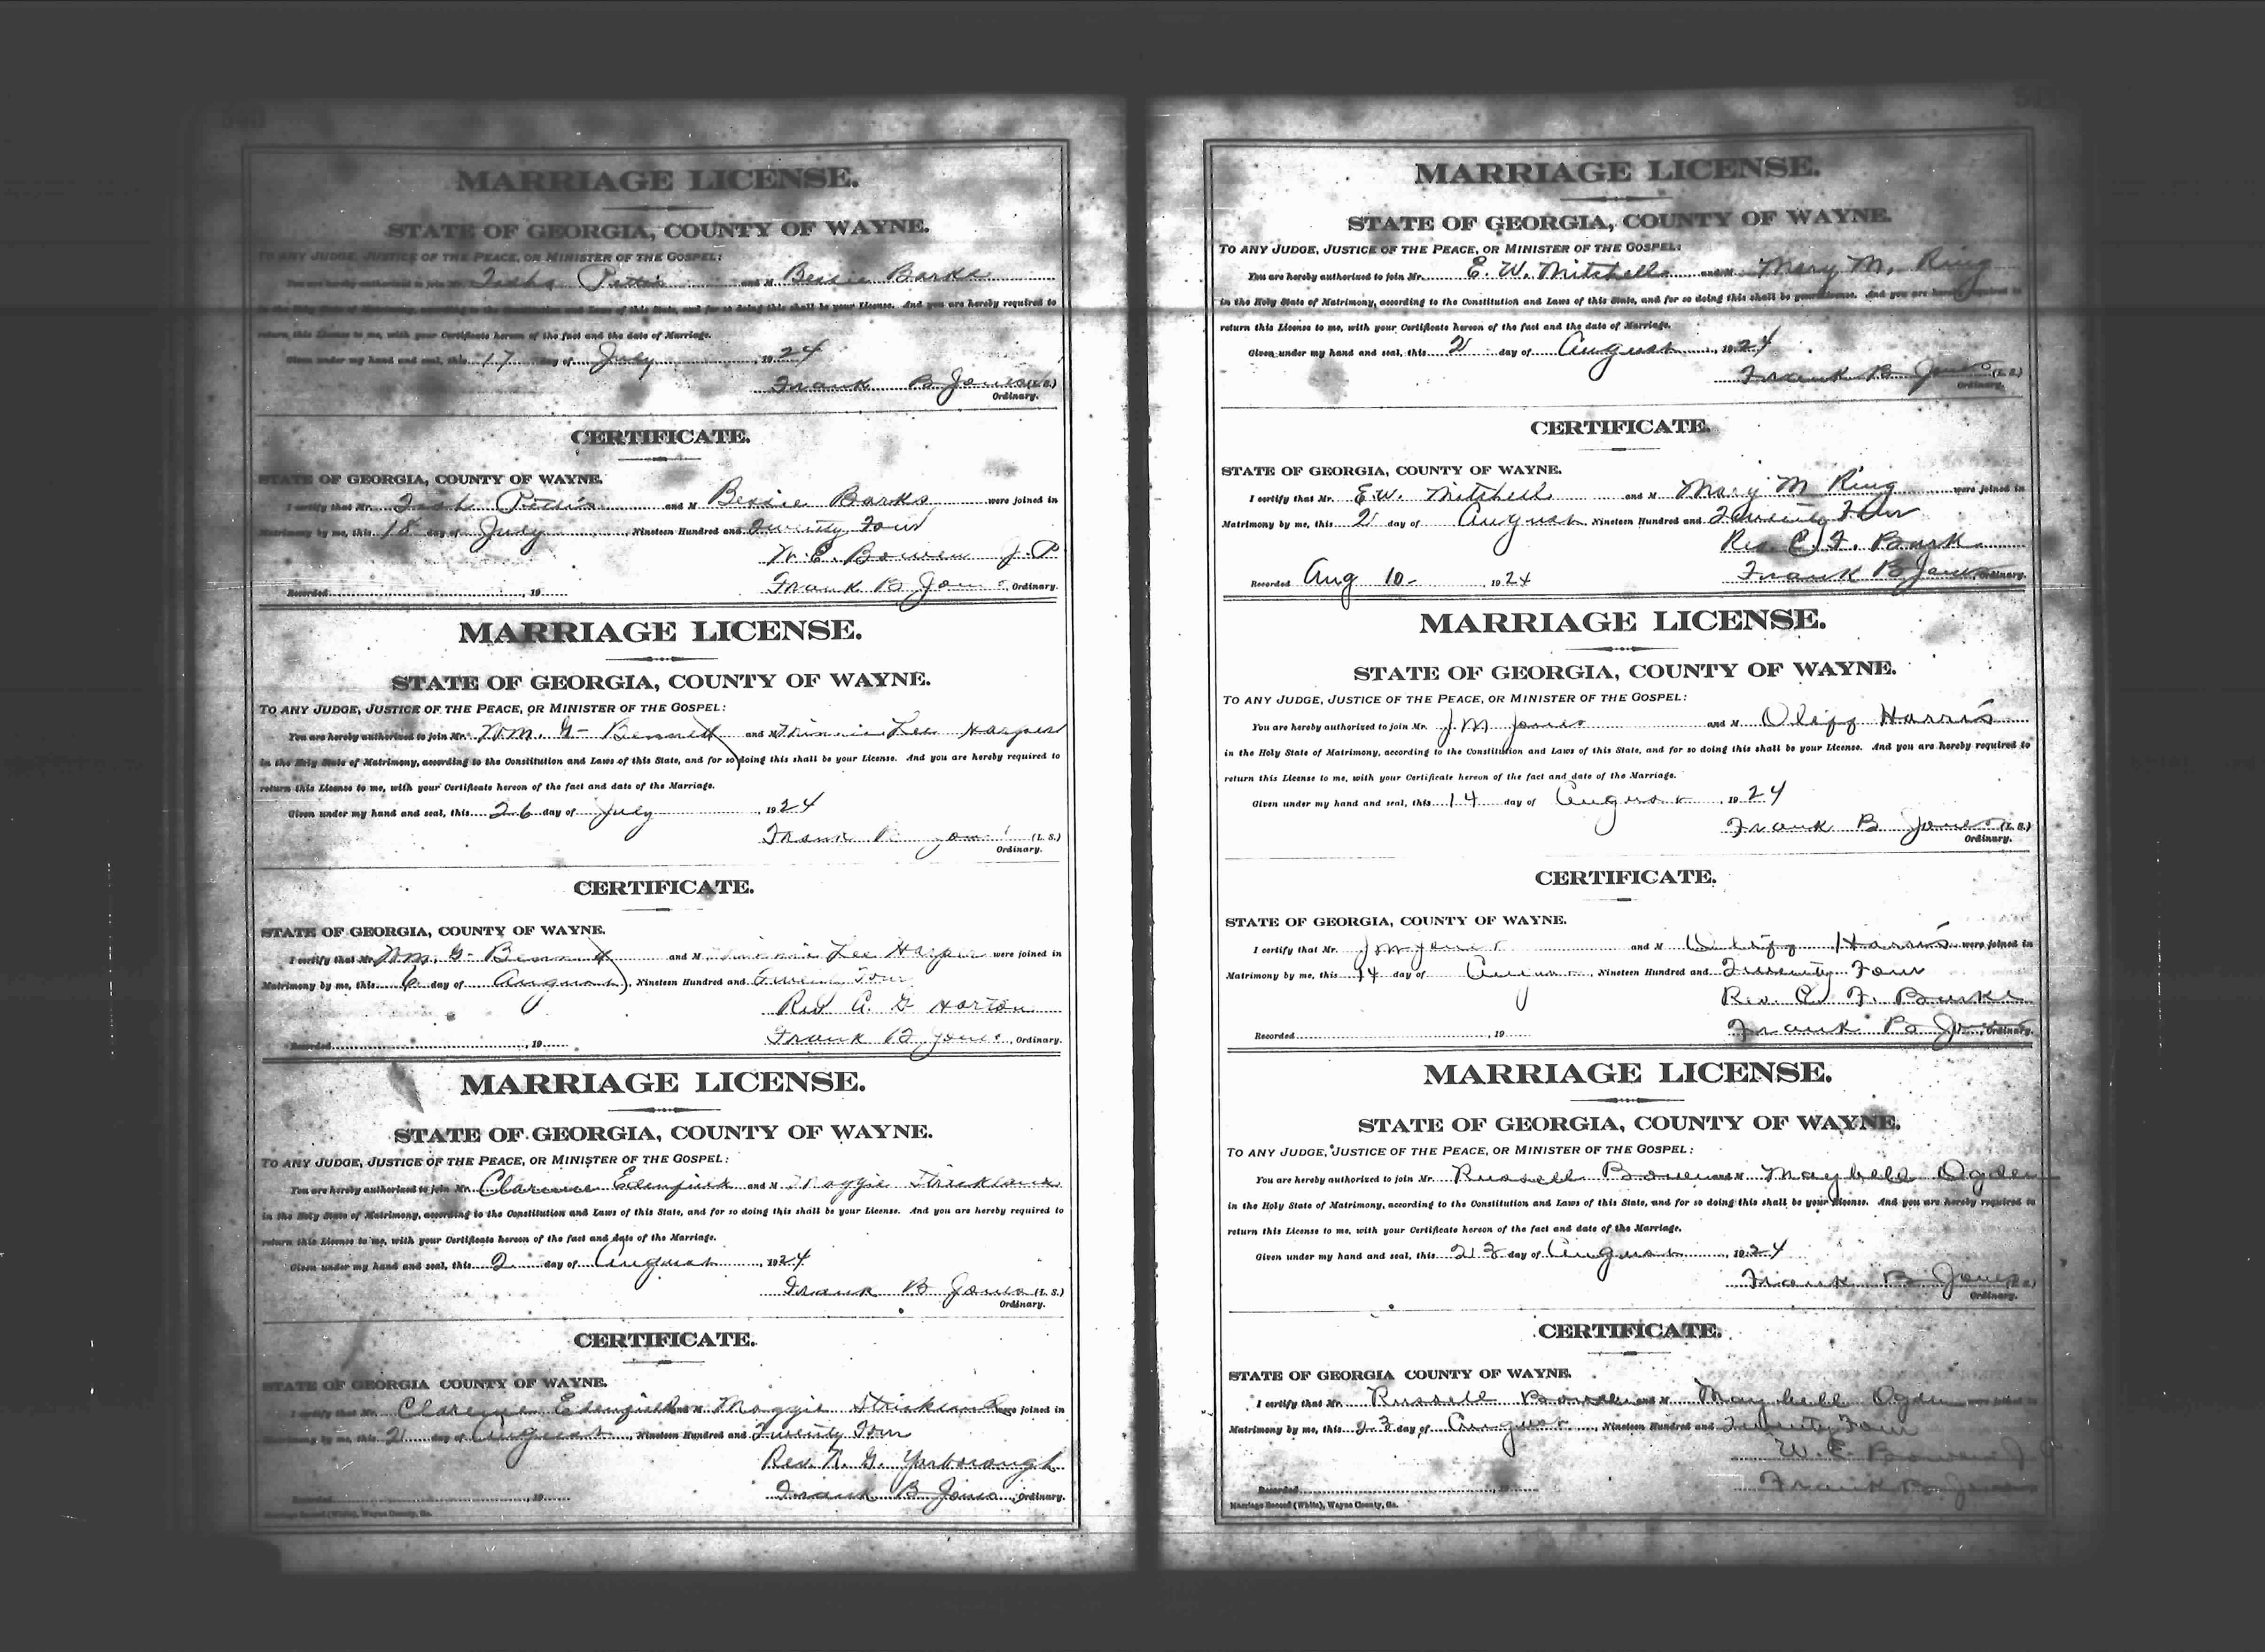 MARRIAGE LICENSE.
STATE OF GEORGIA, COUNTY OF WAYNE.
TO ANY JUDGE, JUSTICE OF THE PEACE, OR MINISTER OF THE GOSPEL:
You are hereby authorized to join Mr. and M Bessie Barks
in the Holy State of Matrimony, according to the Constitution and Laws of this State, and for so doing this shall be your License. And you are hereby required to
return this License to me, with your Certificate hereon of the fact and the date of Marriage.
Given under my hand and seal, this 17 day of July, 1924
Frank B Jones (L. S.)
Ordinary.
CERTIFICATE.
STATE OF GEORGIA, COUNTY OF WAYNE.
I certify that Mr. and M Bessie Barks were joined in
Matrimony by me, this 18 day of July, Nineteen Hundred and Twenty Four
W. E. Bowen J. P.
Recorded, 19 Frank B Jones, Ordinary.
MARRIAGE LICENSE.
STATE OF GEORGIA, COUNTY OF WAYNE.
TO ANY JUDGE, JUSTICE OF THE PEACE, OR MINISTER OF THE GOSPEL:
You are hereby authorized to join Mr. Wm. G. Bennett and M Minnie Lee Harper
in the Holy State of Matrimony, according to the Constitution and Laws of this State, and for so doing this shall be your License. And you are hereby required to
return this License to me, with your Certificate hereon of the fact and date of the Marriage.
Given under my hand and seal, this 26 day of July, 1924
Frank B Jones (L. S.)
Ordinary.
CERTIFICATE.
STATE OF GEORGIA, COUNTY OF WAYNE.
I certify that Mr. Wm. G. Bennett and M Minnie Lee Harper were joined in
Matrimony by me, this 6 day of August, Nineteen Hundred and Twenty Four
Rev A. G Horton
Recorded, 19 Frank B Jones, Ordinary.
MARRIAGE LICENSE.
STATE OF GEORGIA, COUNTY OF WAYNE.
TO ANY JUDGE, JUSTICE OF THE PEACE, OR MINISTER OF THE GOSPEL:
You are hereby authorized to join Mr. Clarence Edenfield and M Maggie Strickland
in the Holy State of Matrimony, according to the Constitution and Laws of this State, and for so doing this shall be your License. And you are hereby required to
return this License to me, with your Certificate hereon of the fact and date of the Marriage.
Given under my hand and seal, this 2 day of August, 1924
Frank B Jones (L. S.)
Ordinary.
CERTIFICATE.
STATE OF GEORGIA COUNTY OF WAYNE.
I certify that Mr. Clarence Edenfield and M Maggie Strickland were joined in
Matrimony by me, this 2 day of August, Nineteen Hundred and Twenty Four
Rev. N. G. Yarborough
Recorded, 19 Frank B Jones, Ordinary.
Marriage Record (White), Wayne County, Ga.
MARRIAGE LICENSE.
STATE OF GEORGIA, COUNTY OF WAYNE.
TO ANY JUDGE, JUSTICE OF THE PEACE, OR MINISTER OF THE GOSPEL:
You are hereby authorized to join Mr. E. W. Mitchell and M Mary M. Ring
in the Holy State of Matrimony, according to the Constitution and Laws of this State, and for so doing this shall be your License. And you are hereby required to
return this License to me, with your Certificate hereon of the fact and the date of Marriage.
Given under my hand and seal, this 2 day of August, 1924
Frank B Jones (L. S.)
Ordinary.
CERTIFICATE.
STATE OF GEORGIA, COUNTY OF WAYNE.
I certify that Mr. E. W. Mitchell and M Mary M Ring were joined in
Matrimony by me, this 2 day of August Nineteen Hundred and Twenty Four
Rev. C. F.
Recorded Aug 10 - 1924 Frank B Jones, Ordinary.
MARRIAGE LICENSE.
STATE OF GEORGIA, COUNTY OF WAYNE.
TO ANY JUDGE, JUSTICE OF THE PEACE, OR MINISTER OF THE GOSPEL:
You are hereby authorized to join Mr. J. M Jones and M Harris
in the Holy State of Matrimony, according to the Constitution and Laws of this State, and for so doing this shall be your License. And you are hereby required to
return this License to me, with your Certificate hereon of the fact and date of the Marriage.
Given under my hand and seal, this 14 day of August, 1924
Frank B Jones (L. S.)
Ordinary.
CERTIFICATE.
STATE OF GEORGIA, COUNTY OF WAYNE.
I certify that Mr. J M Jones and M Harris were joined in
Matrimony by me, this 14 day of August, Nineteen Hundred and Twenty Four
Rev. C. F. Burke
Recorded, 19 Frank B Jones, Ordinary.
MARRIAGE LICENSE.
STATE OF GEORGIA, COUNTY OF WAYNE.
TO ANY JUDGE, JUSTICE OF THE PEACE, OR MINISTER OF THE GOSPEL:
You are hereby authorized to join Mr. Russell Bowen and M Maybell Ogden
in the Holy State of Matrimony, according to the Constitution and Laws of this State, and for so doing this shall be your License. And you are hereby required to
return this License to me, with your Certificate hereon of the fact and date of the Marriage.
Given under my hand and seal, this 23 day of August, 1924
Frank B Jones (L. S.)
Ordinary.
CERTIFICATE.
STATE OF GEORGIA COUNTY OF WAYNE.
I certify that Mr. Russell Bowen and M Maybell Ogden were joined in
Matrimony by me, this 23 day of August, Nineteen Hundred and Twenty Four
W. E. Bowen J P
Recorded, 19 Frank B Jones
Marriage Record (White), Wayne County, Ga.